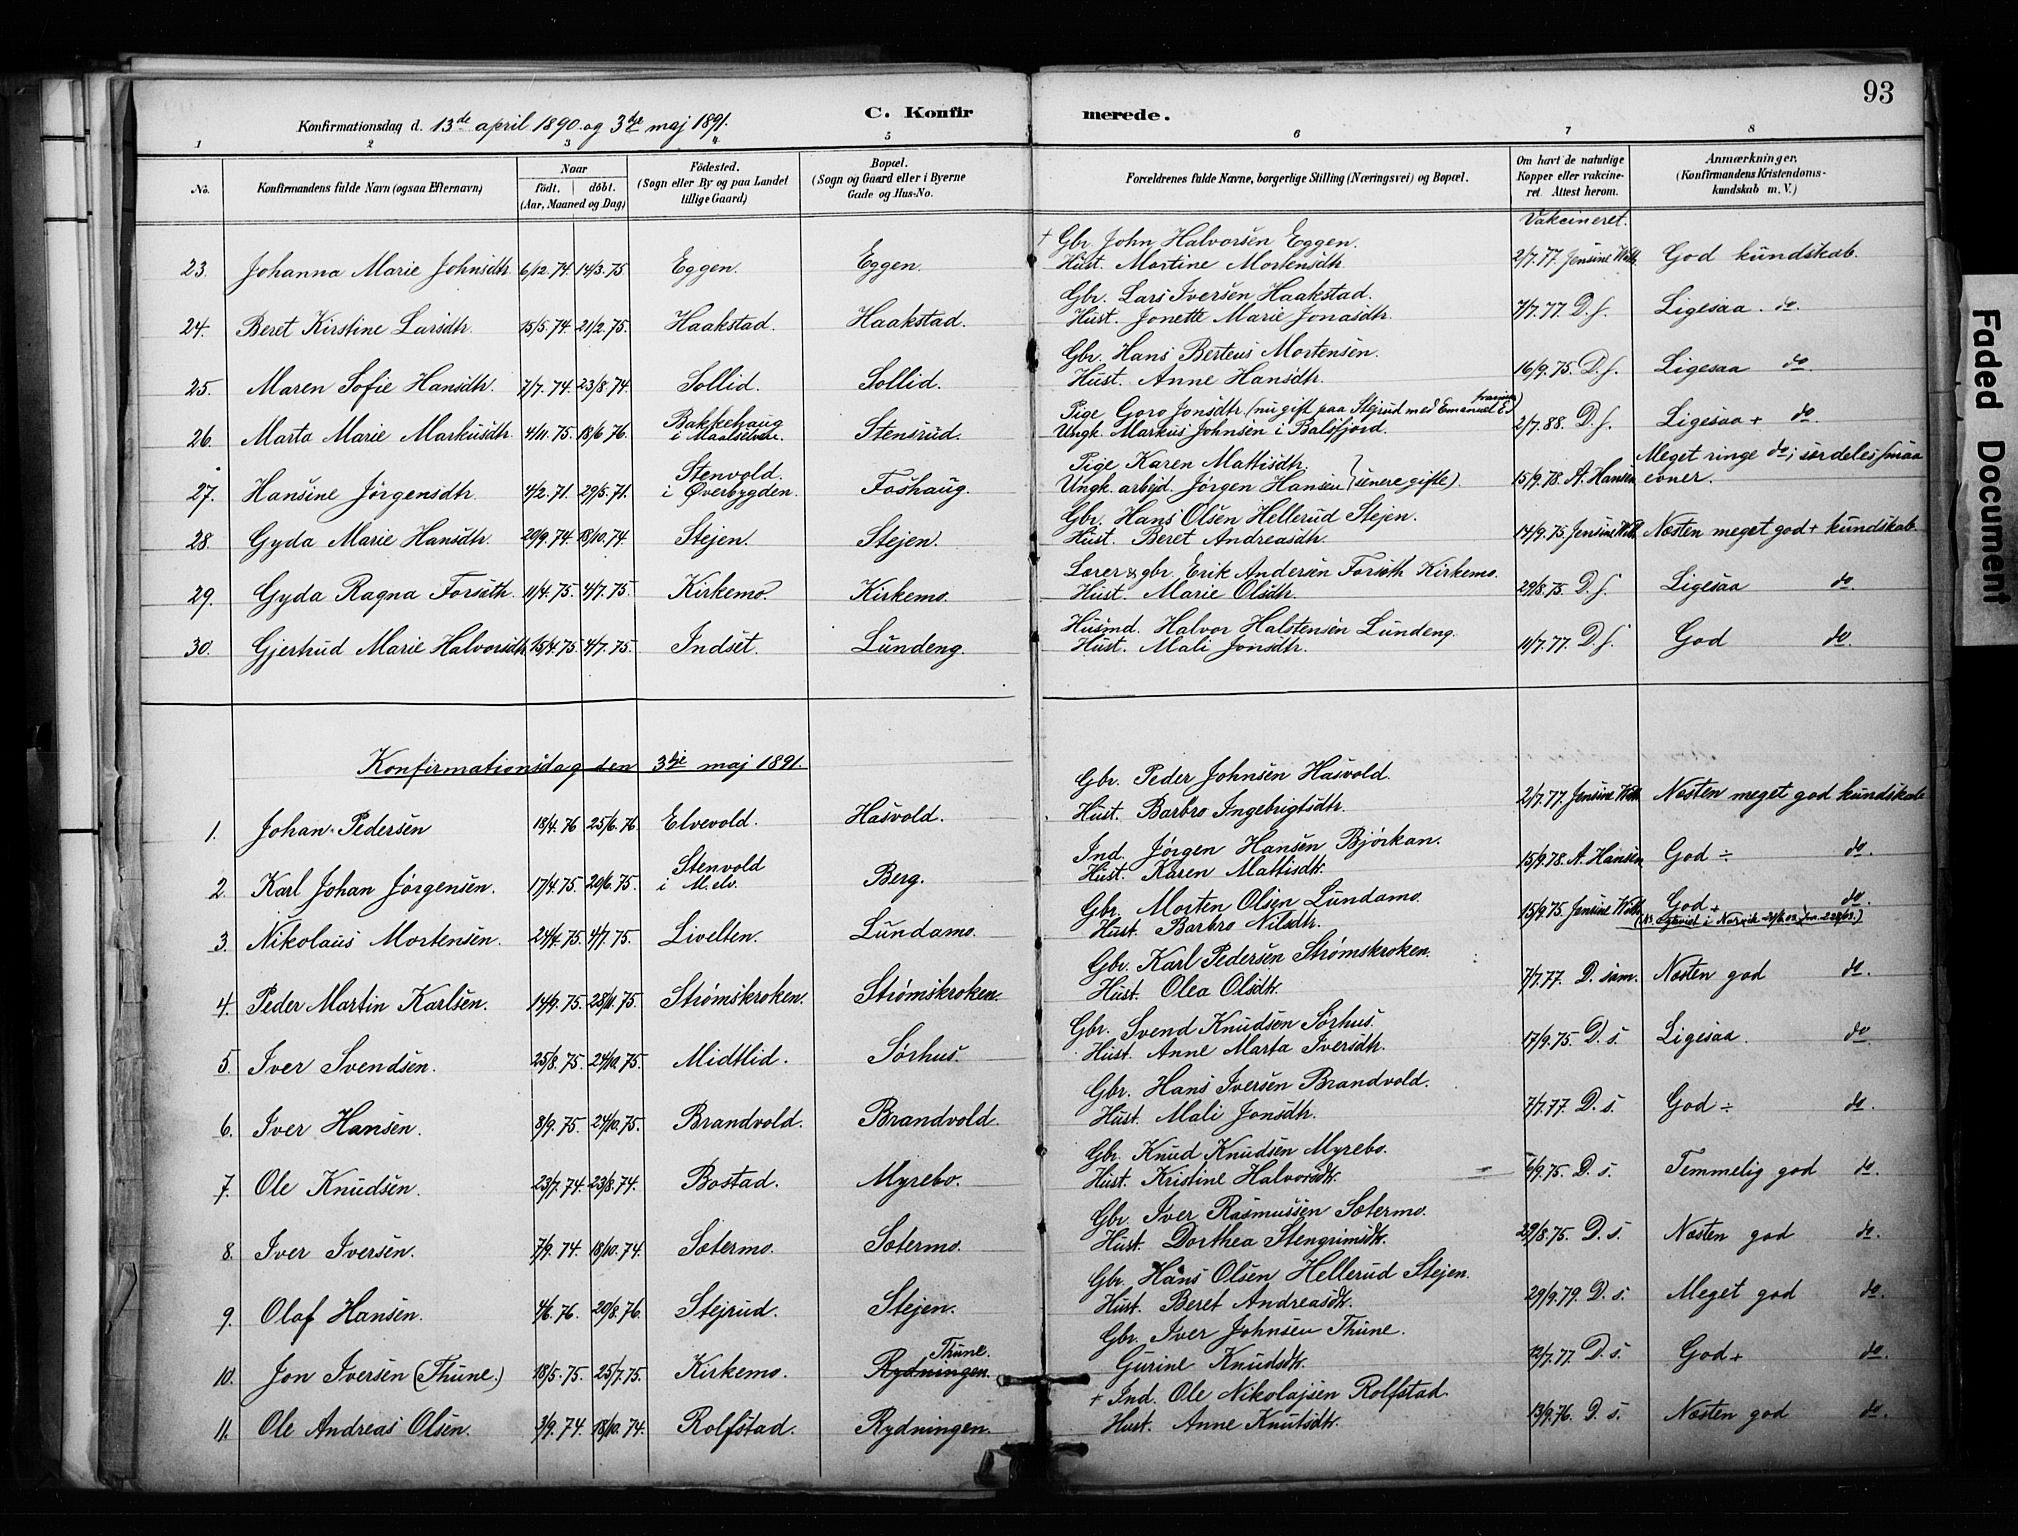 93
Konfirmationsdag d. 13de april 1890 og 3die maj 1891.
C. Konfirmerede.
1 2 3 4 5 6 7 8
No. Konfirmandens fulde Navn (ogsaa Efternavn) Naar født. døbt. (Aar, Maaned og Dag) Fødested. (Sogn eller By og paa Landet tillige Gaard) Bopæl. (Sogn og Gaard eller i Byerne Gade og Hus-No. Forældrenes fulde Navne, borgerlige Stilling (Næringsvei) og Bopæl. Om havt de naturlige Kopper eller vakcineret. Attest herom. Anmærkninger. (Konfirmandens Kristendomskundskab m. V.)
Vakcineret.
23. Johanna Marie Johnsdtr. 6/12.74. 14/3.75 Eggen. Eggen. + Gbr. John Halvorsen Eggen. 2/7.77. Jensine God kundskab.
Hust. Martine Mortensdtr.
24. Beret Kirstine Larsdtr. 15/5.74. 21/2.75. Haakstad. Haakstad. Gbr. Lars Iversen Haakstad. 7/7.77. D.s. Ligesaa. do.
Hust. Jonette Marie Jonasdtr.
25. Maren Sofie Hansdtr. 7/7.74. 23/8.74. Sollid. Sollid. Gbr. Hans Berteus Mortensen. 16/9.75. D.s. Ligesaa do.
Hust. Anne Hansdtr.
26. Marta Marie Markusdtr. 4/11.75. 18/6.76. Bakkehaug i Maalselven. Stensrud. Pige Goro Jonsdtr. (nu gift paa Stejrud med Emanuel 2/7.88. D.s. Ligesaa + do.
Ungk. Markus Johnsen i Balsfjord.
27. Hansine Jørgensdtr. 4/2.71. 29/5.71. Stenvold. i Øverbygden. Foshaug. Pige Karen Mattisdtr. 15/9.78. A. Hansen Meget ringe do; særdeles smaa evner.
Ungk. arbejd. Jørgen Hansen (senere gifte).
28. Gyda Marie Hansdtr. 20/9.74. 18/10.74. Stejen. Stejen. Gbr. Hans Olsen Hellerud Stejen. 17/9.75. Jensine Næsten meget god + kundskab
Hust. Beret Andreasdtr.
29. Gyda Ragna Forseth. 11/4.75. 4/7.75. Kirkemo. Kirkemo. Lærer & gbr. Erik Andersen Forseth Kirkemo. 29/8.75. D.s. Ligesaa do.
Hust. Marie Olsdtr.
30. Gjertrud Marie Halvorsdtr. 15/4.75. 4/7.75. Indset. Lundeng. Husmd. Halvor Halstensen Lundeng. 11/7.77. D.s. God do.
Hust. Mali Jonsdtr.
Konfirmationsdag den 3die maj 1891.
1. Johan Pedersen 18/4.76 25/6.76 Elvevold. Hasvold. Gbr. Peder Johnsen Hasvold. 2/7.77. Jensine Næsten meget god kundskab
Hust. Barbro Ingebrigtsdtr.
2. Karl Johan Jørgensen. 17/4.75. 20/6.75. Stenvold i M.elv. Berg. Ind. Jørgen Hansen Bjørkan. 15/9.78. A. Hansen God ÷ do.
Hust. Karen Mattisdtr.
3. Nikolaus Mortensen. 24/4.75. 4/7.75. Livelten. Lundamo. Gbr. Morten Olsen Lundamo. 15/9.75. Jensine God + do.
Hust. Barbro Nilsdtr.
4. Peder Martin Karlsen. 14/9.75. 28/11.75. Strømskroken. Strømskroken. Gbr. Karl Pedersen Strømskroken. 7/7.77. D. sam. Næsten god do.
Hust. Olea Olsdtr.
5. Iver Svendsen. 25/8.75. 24/10.75. Midtlid. Sørhus. Gbr. Svend Knudsen Sørhus. 17/9.75. D.s. Ligesaa. do.
Hust. Anne Marta Iversdtr.
6. Iver Hansen. 8/9.75. 24/10.75. Brandvold. Brandvold. Gbr. Hans Iversen Brandvold. 7/7.77. D.s. God ÷ do.
Hust. Mali Jonsdtr.
7. Ole Knudsen. 23/7.74. 23/8.74. Bostad. Myrebo. Gbr. Knud Knudsen Myrebo. D.s. Temmelig god do.
Hust. Kristine Halvorsdtr.
8. Iver Iversen. 7/9.74. 18/10.74. Sætermo. Sætermo. Gbr. Iver Rasmussen Sætermo. 29/8.75. D.s. Næsten god do.
Hust. Dorthea Stengrimsdtr.
9. Olaf Hansen. 4/6.76. 20/8.76. Stejrud. Stejen. Gbr. Hans Olsen Hellerud Stejen. 29/9.79. D.s. Meget god do.
Hust. Beret Andreasdtr.
10. Jon Iversen (Thune.) 18/5.75. 25/7.75. Kirkemo. Rydningen. Thune. Gbr. Iver Johnsen Thune. 12/7.77. D.s. God + do.
Gurine Knudsdtr.
11. Ole Andreas Olsen. 3/9.74. 18/10.74. Rolfstad. Rydningen. + Ind. Ole Nikolajsen Rolfstad. 13/9.76. D.s. Næsten god do.
Hust. Anne Knutsdtr.
Faded Document